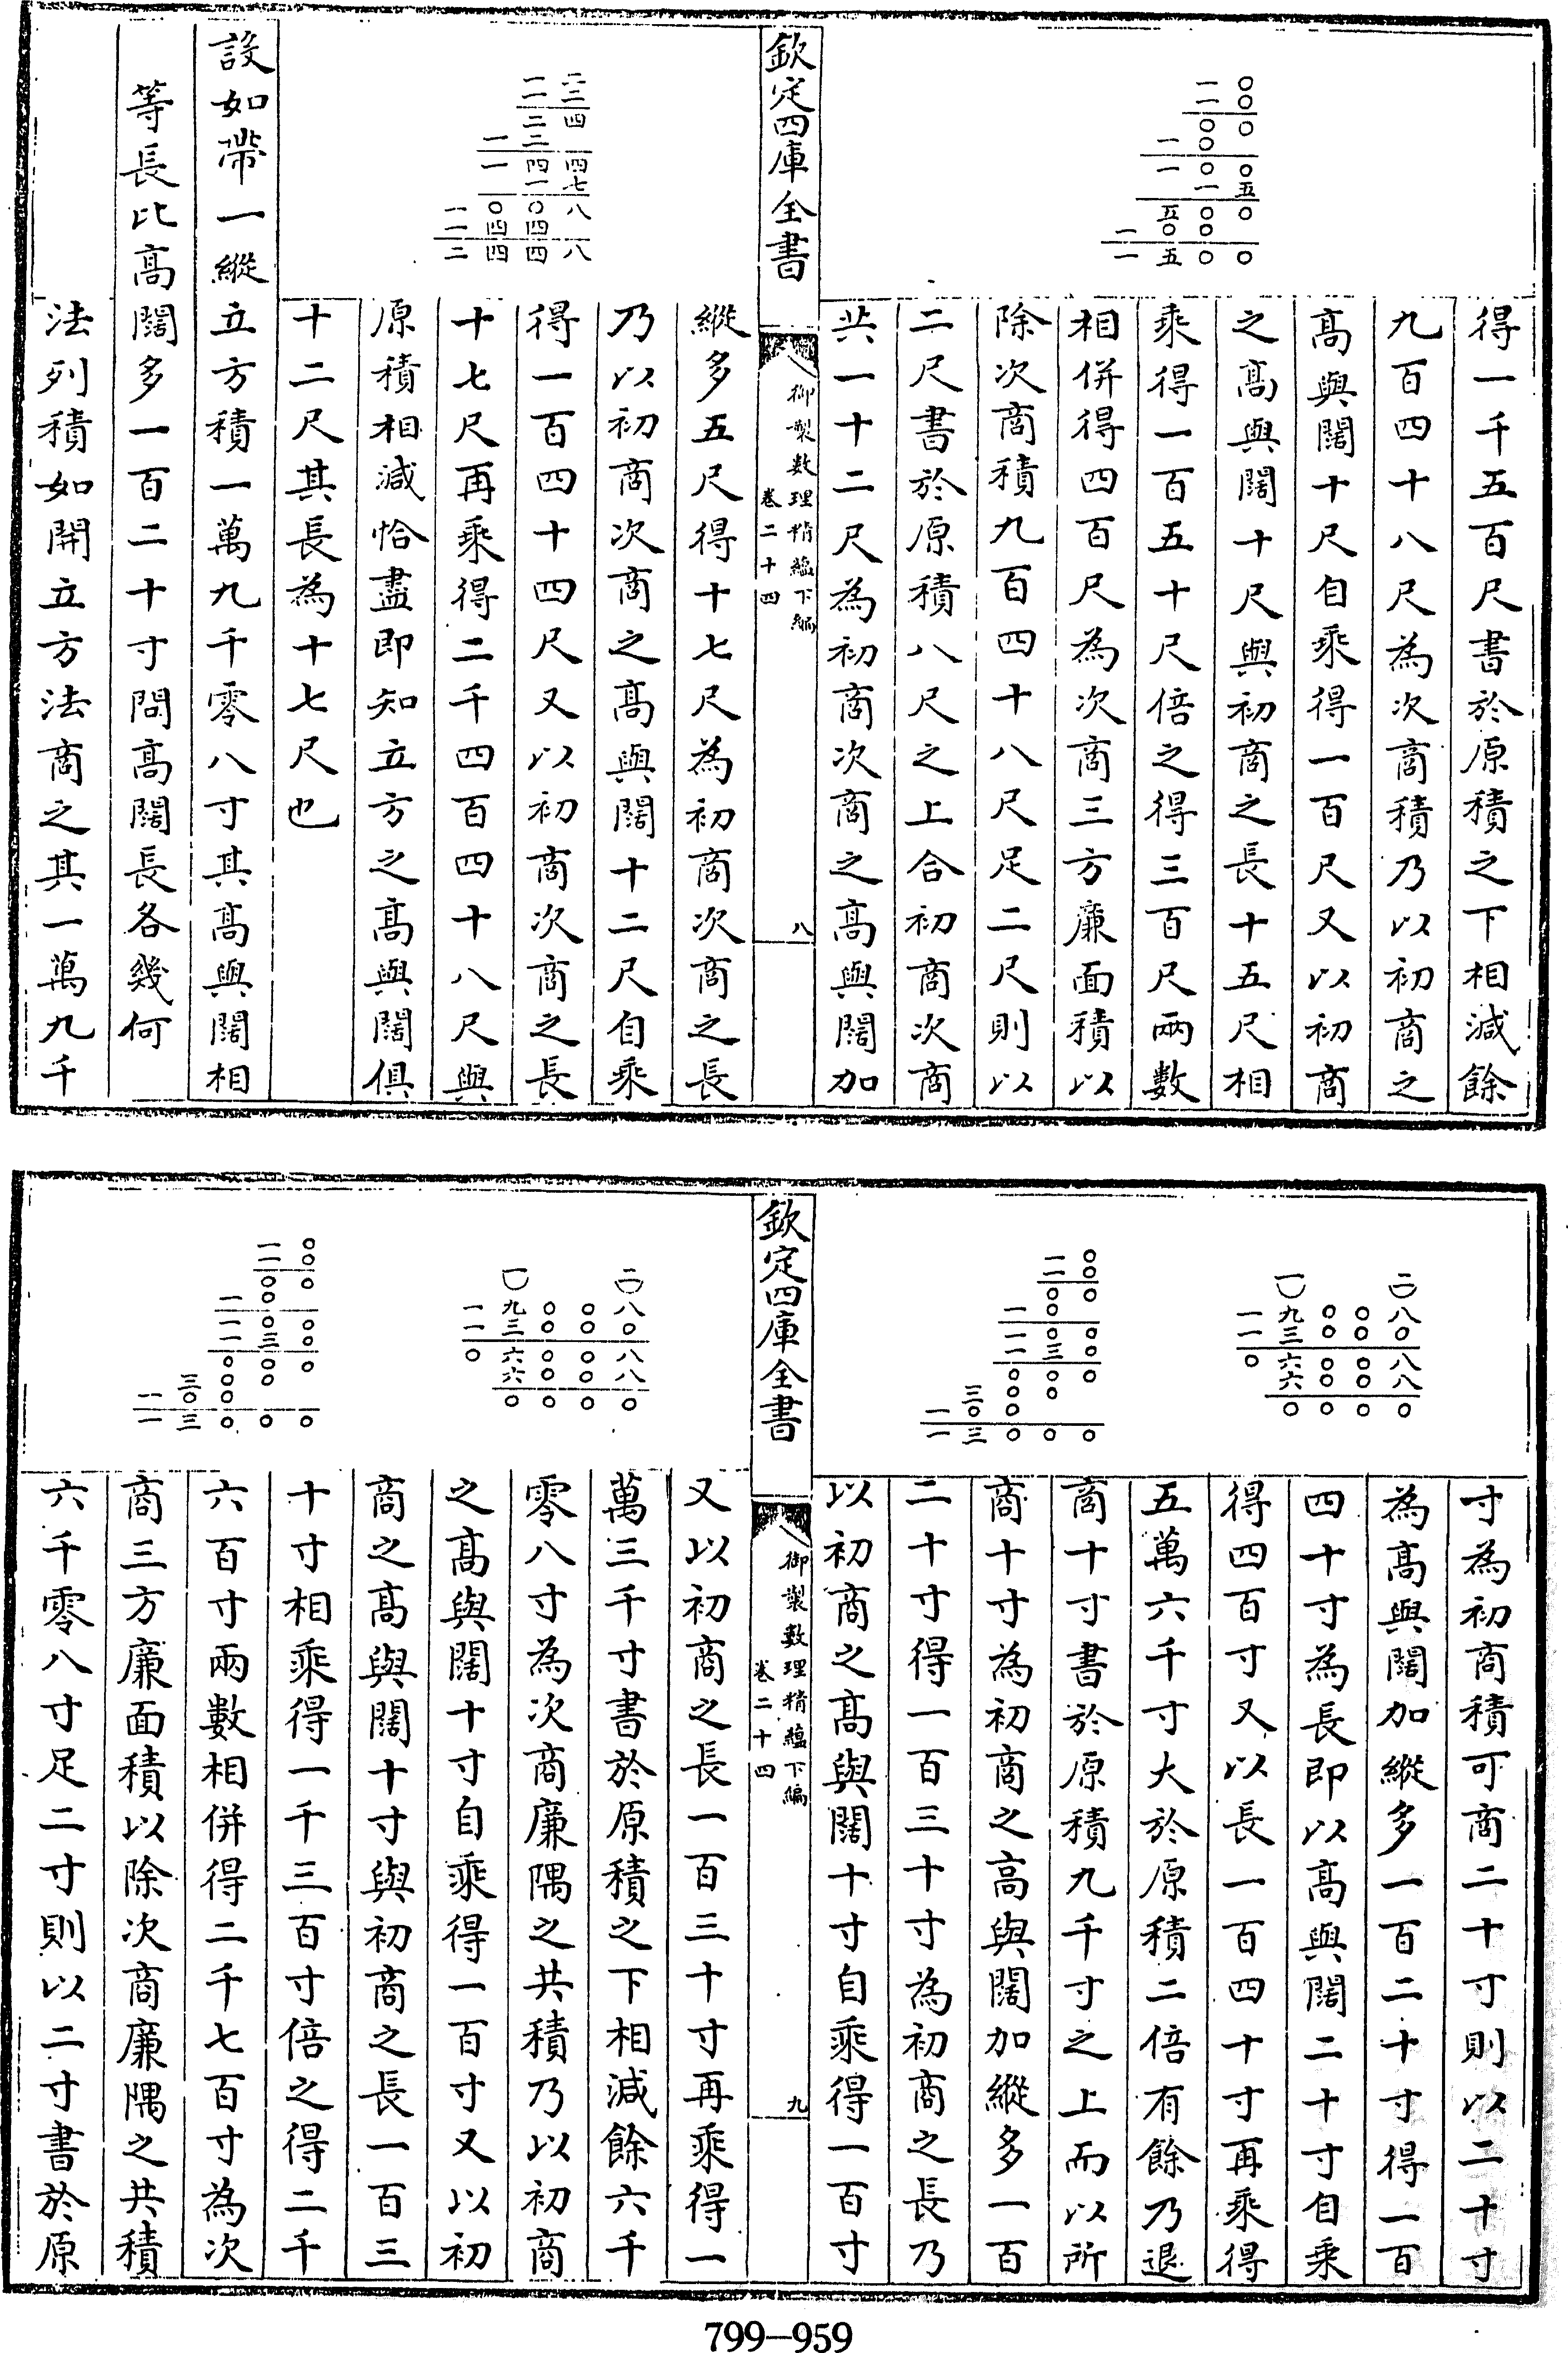 〇〇
一〇
一〇〇
〇
一〇〇
一〇五
一〇
五〇〇
一〇〇
一五〇〇
得一千五百尺書於原積之下相減餘
九百四十八尺為次商積乃以初商之
高與闊十尺自乘得一百尺又以初商
之高與闊十尺與初商之長十五尺相
乘得一百五十尺倍之得三百尺兩數
相併得四百尺為次商三方廉面積以
除次商積九百四十八尺足二尺則以
二尺書於原積八尺之上合初商次商
共一十二尺為初商次商之高與闊加
欽定四庫全書
御製數理精蘊下編
卷二十四
八
一二
一二
二四
一二
一四四
一七
一〇八
一四四
二四四八
縱多五尺得十七尺為初商次商之長
乃以初商次商之高與闊十二尺自乘
得一百四十四尺又以初商次商之長
十七尺再乘得二千四百四十八尺與
原積相減恰盡即知立方之高與闊俱
十二尺其長為十七尺也
設如帶一縱立方積一萬九千零八寸其高與闊相
等長比高闊多一百二十寸問高闊長各幾何
法列積如開立方法商之其一萬九千
一二
一九〇〇八
一三〇〇〇
〇六〇〇八
六〇〇八
〇〇〇〇
一〇
一〇
〇〇
一〇
一〇〇
一三〇
〇〇〇
三〇〇
一〇〇
一三〇〇〇
寸為初商積可商二十寸則以二十寸
為高與闊加縱多一百二十寸得一百
四十寸為長即以高與闊二十寸自乘
得四百寸又以長一百四十寸再乘得
五萬六千寸大於原積二倍有餘乃退
商十寸書於原積九千寸之上而以所
商十寸為初商之高與闊加縱多一百
二十寸得一百三十寸為初商之長乃
以初商之高與闊十寸自乘得一百寸
欽定四庫全書
御製數理精蘊下編
卷二十四
九
一二
一九〇〇八
一三〇〇〇
〇六〇〇八
六〇〇八
〇〇〇〇
一〇
一〇
〇〇
一〇
一〇〇
一三〇
〇〇〇
三〇〇
一〇〇
一三〇〇〇
又以初商之長一百三十寸再乘得一
萬三千寸書於原積之下相減餘六千
零八寸為次商廉隅之共積乃以初商
之高與闊十寸自乘得一百寸又以初
商之高與闊十寸與初商之長一百三
十寸相乘得一千三百寸倍之得二千
六百寸兩數相併得二千七百寸為次
商三方廉面積以除次商廉隅之共積
六千零八寸足二寸則以二寸書於原
799—959